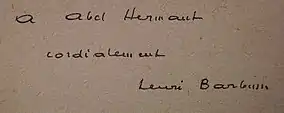 a Abel Hermant
cordialement
Henri Barbusse